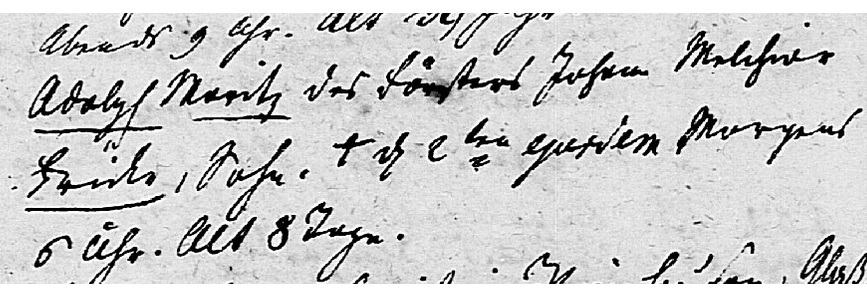 Abends 9 Uhr. Alt
Adolph Moritz des Försters Johann Melchior
Fricke, Sohn. † d 2ten ejusdem Morgens
6 Uhr. Alt 8 Tage.